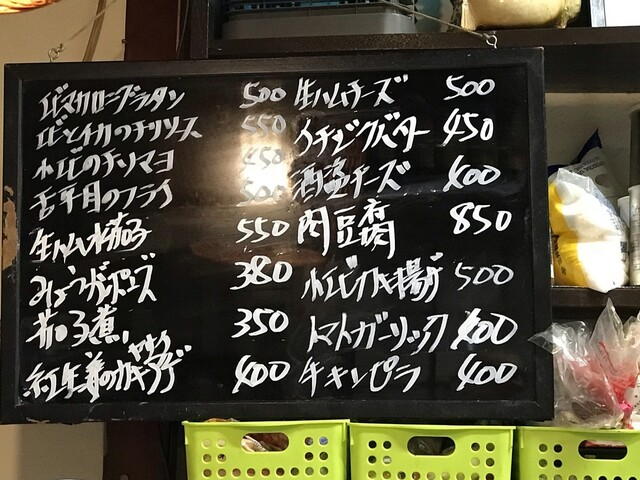 エビマカロニグラタン 500
エビとイカのチリソース 550
小エビのチリマヨ 450
舌平目のフライ 500
生ハム水茄子 550
みょうがポン酢 380
茄子煮 350
紅生姜のカキアゲ 400
生ハムチーズ 500
イチジクバター 450
酒盗チーズ 400
肉豆腐 850
小エビカキ揚げ 500
トマトガーリック 400
牛キンピラ 400